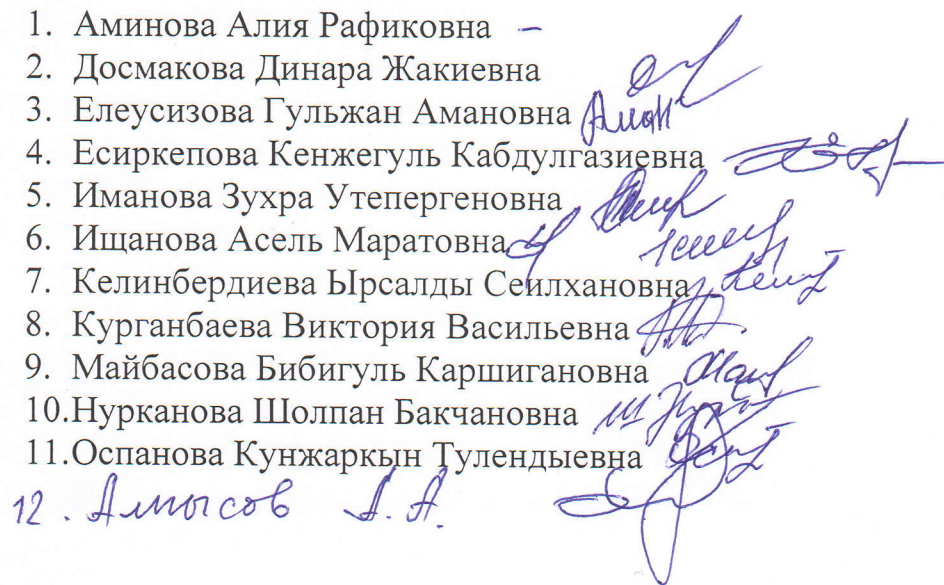 1. Аминова Алия Рафиковна –
2. Досмакова Динара Жакиевна
3. Елеусизова Гульжан Амановна
4. Есиркепова Кенжегуль Кабдулгазиевна
5. Иманова Зухра Утепергеновна
6. Ищанова Асель Маратовна
7. Келинбердиева Ырсалды Сеилхановна
8. Курганбаева Виктория Васильевна
9. Майбасова Бибигуль Каршигановна
10.Нурканова Шолпан Бакчановна
11.Оспанова Кунжаркын Тулендыевна
12. Алтысов А. А.